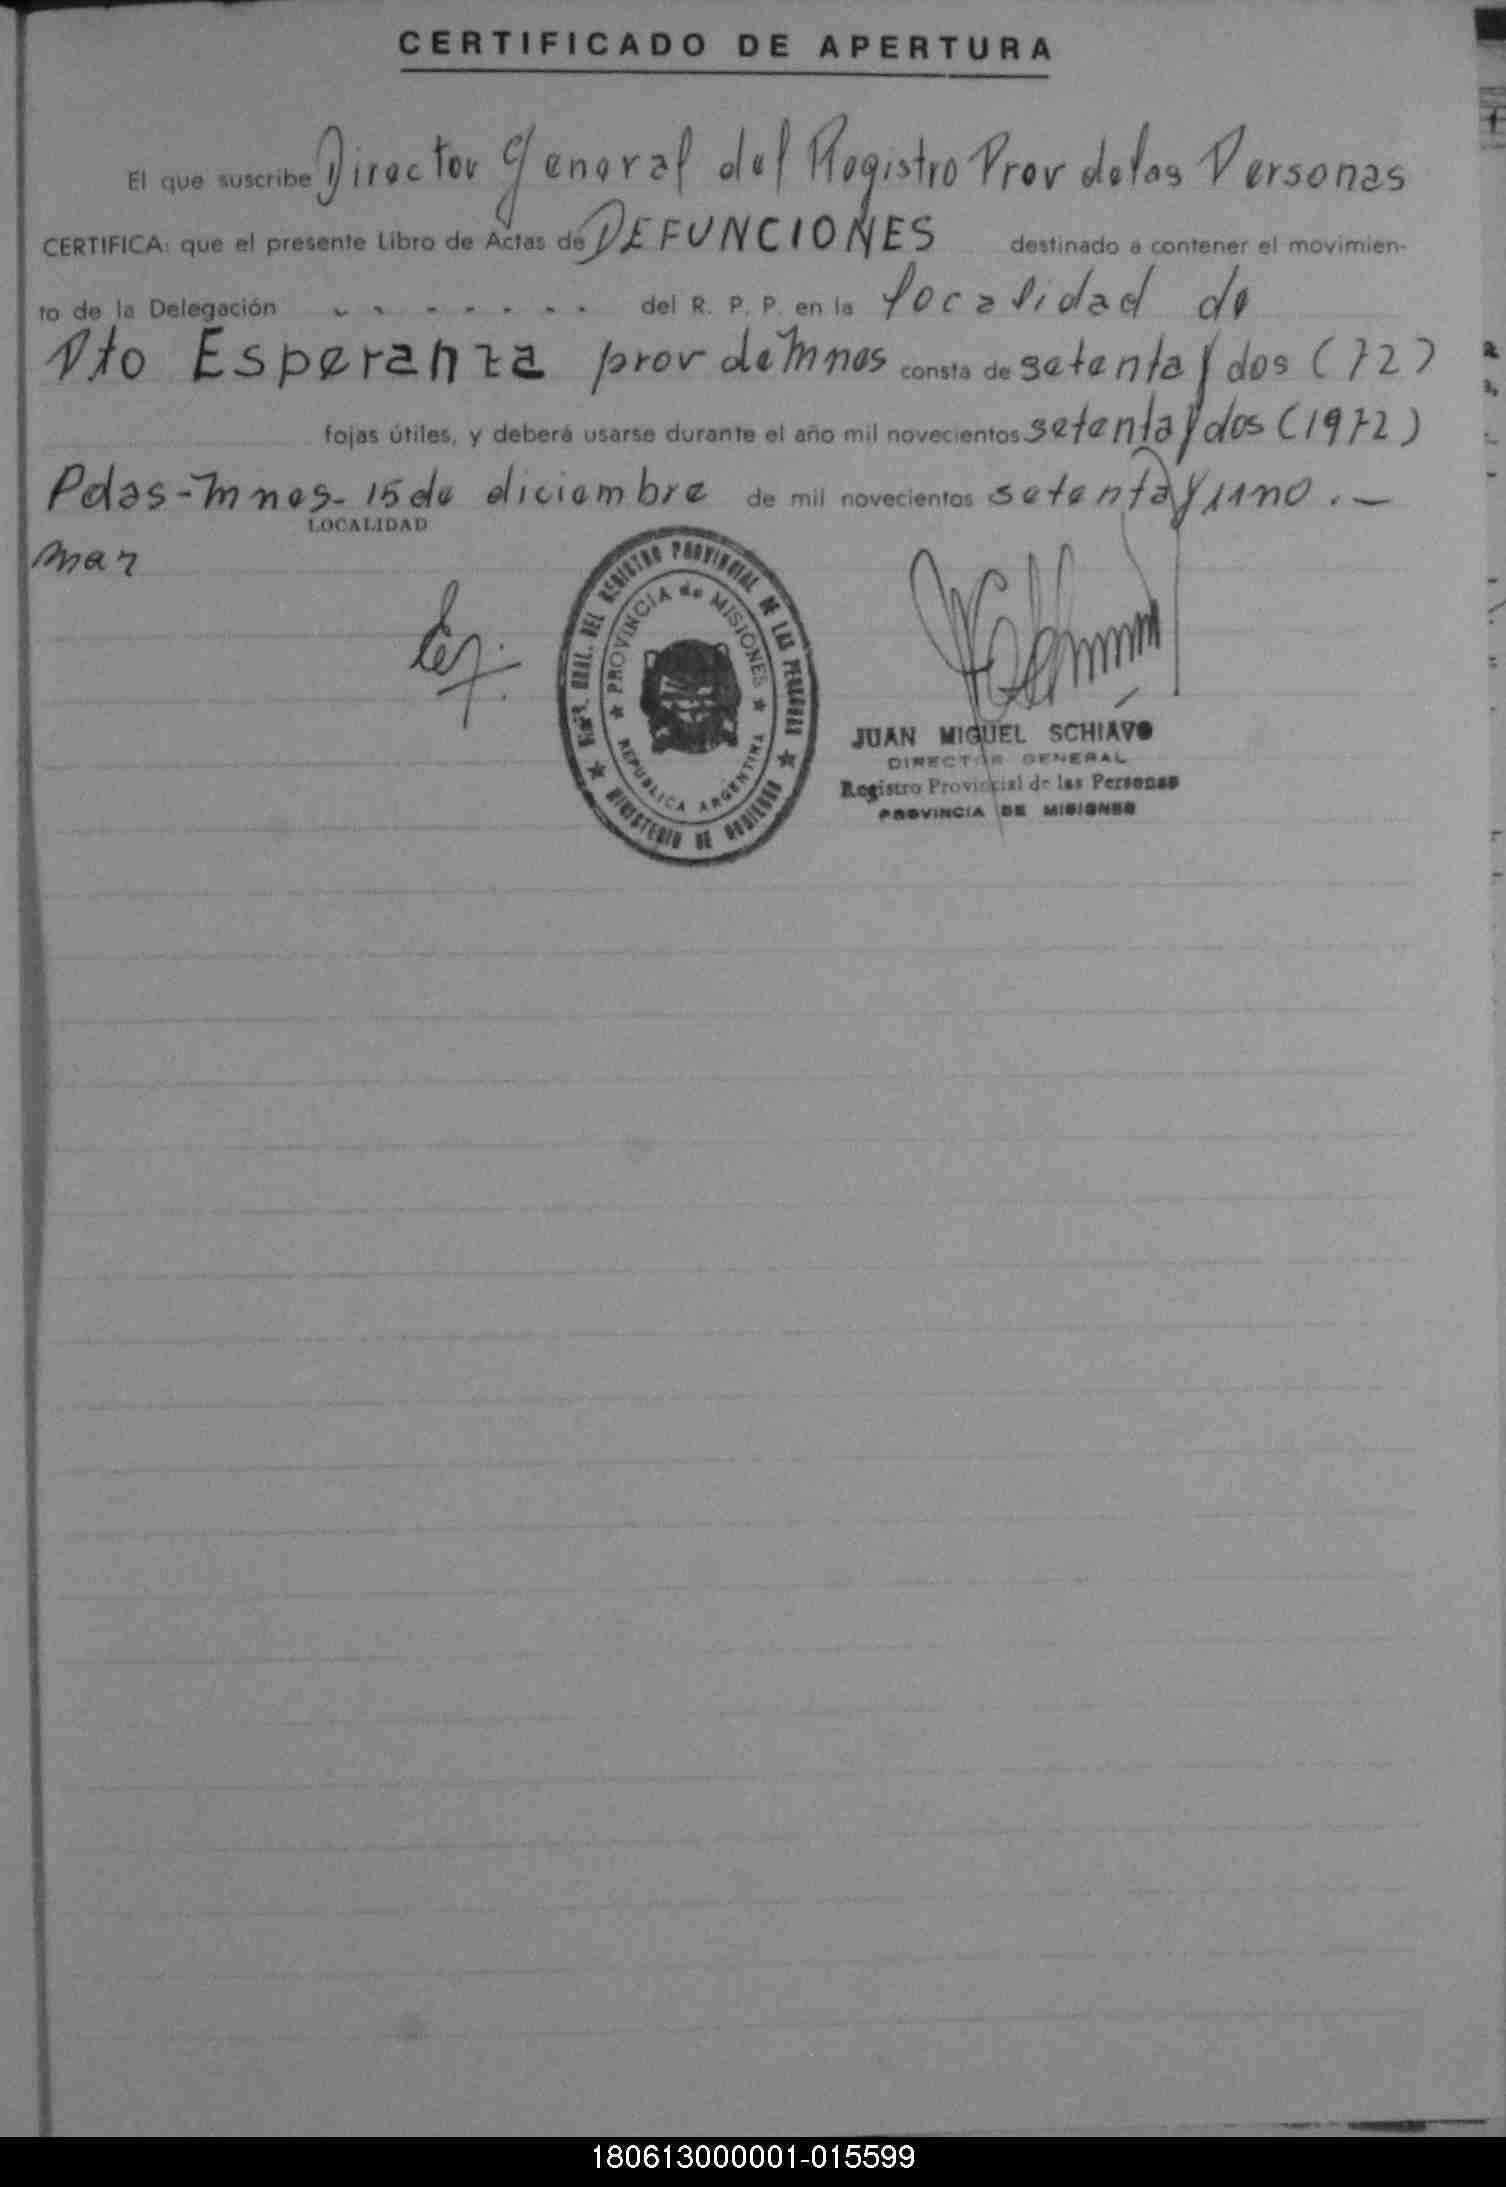 CERTIFICADO DE APERTURA
El que suscribe Director General del Registro Prov de las Personas
CERTIFICA: que el presente Libro de Actas de DEFUNCIONES destinado a contener el movimien-
to de la Delegación - - - - - - - del R. P. P. en la localidad de
Pto Esperanza prov de Mnes consta de setenta y dos (72)
fojas útiles, y deberá usarse durante el año mil novecientos setenta y dos (1972)
Pdas-Mnes- 15 de diciembre de mil novecientos setenta y uno.-
LOCALIDAD
mar
DIR. GRAL. DEL REGISTRO PROVINCIAL DE LAS PERSONAS
PROVINCIA de MISIONES
REPUBLICA ARGENTINA
MINISTERIO DE GOBIERNO
JUAN MIGUEL SCHIAVO
DIRECTOR GENERAL
Registro Provincial de las Personas
PROVINCIA DE MISIONES
180613000001-015599